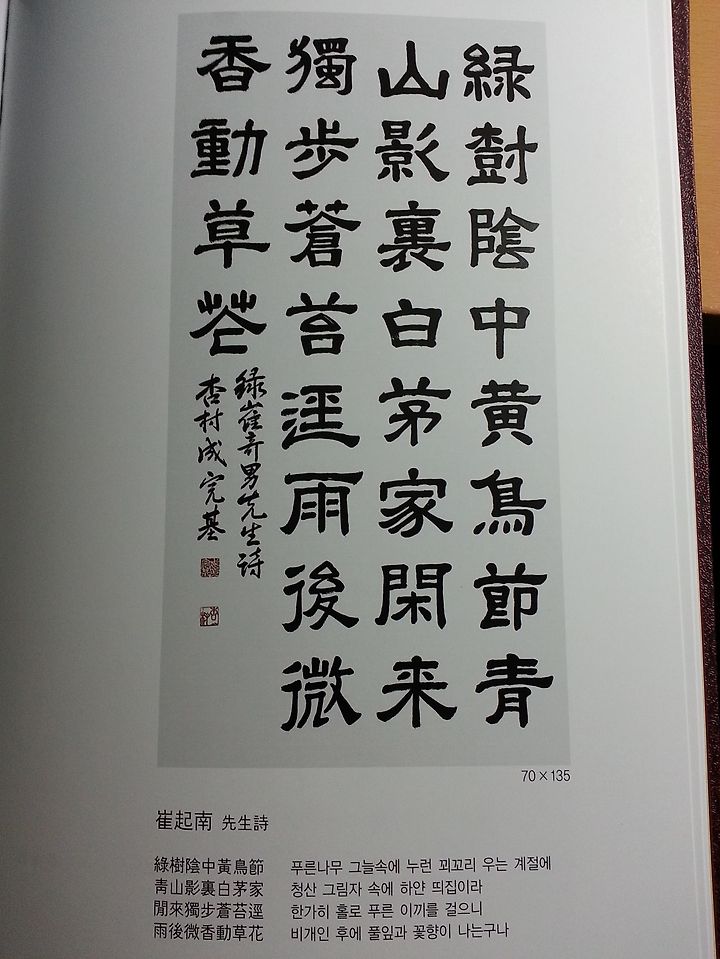 緑樹陰中黄鳥節青
山影裏白茅家閑来
獨歩蒼苔逕雨後微
香動草花
録崔奇男先生詩
杏村成完基
70×135
崔起南 先生詩
綠樹陰中黃鳥節 푸른나무 그늘속에 누런 꾀꼬리 우는 계절에
靑山影裏白茅家 청산 그림자 속에 하얀 띄집이라
閒來獨步蒼苔逕 한가히 홀로 푸른 이끼를 걸으니
雨後微香動草花 비개인 후에 풀잎과 꽃향이 나는구나